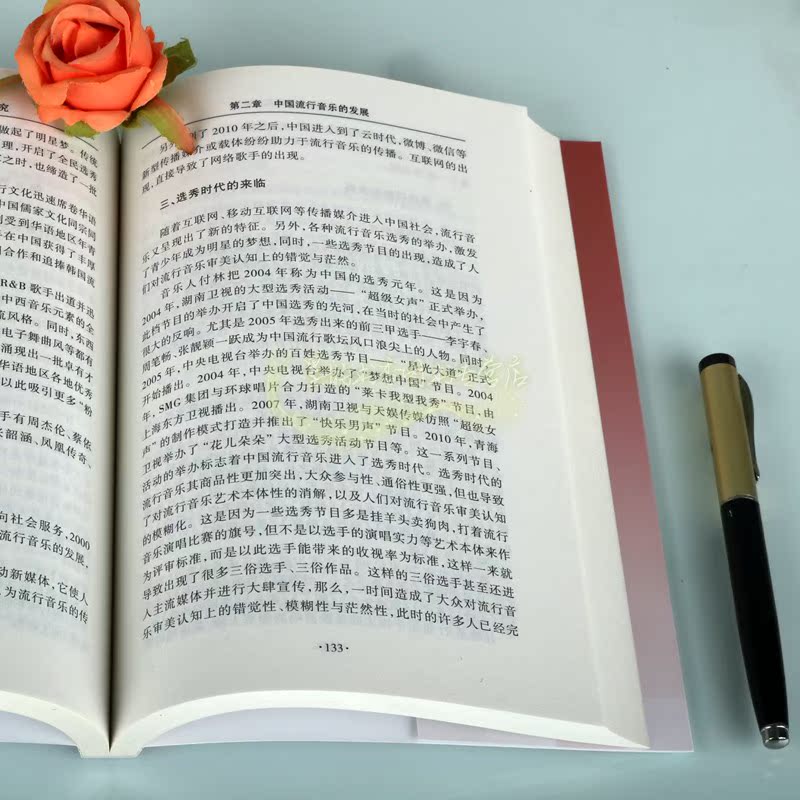 究
做起了明星梦。传统
理，开启了全民选秀
之时，也缔造了一批
行文化迅速席卷华语
国儒家文化同宗同
到受到华语地区年青
在中国获得了丰厚
合作和追捧韩国流
R&B 歌手出道并迅
中西音乐元素的全
流风格。同时，东西
电子舞曲风等都有
涌现出一批卓有才
华语地区各地优秀
以此吸引更多“粉
手有周杰伦、蔡依
长韶涵、凤凰传奇、
向社会服务，2000
行音乐的发展，
动新媒体，它使人
为流行音乐的传
第二章 中国流行音乐的发展
到了 2010 年之后，中国进入到了云时代，微博、微信等
新型传播媒介或载体纷纷助力于流行音乐的传播。互联网的出
现，直接导致了网络歌手的出现。
三、选秀时代的来临
随着互联网、移动互联网等传播媒介进入中国社会，流行音
乐又呈现出了新的特征。另外，各种流行音乐选秀的举办，激发
了青少年成为明星的梦想，同时，一些选秀节目的出现，造成了人
们对流行音乐审美认知上的错觉与茫然。
音乐人付林把 2004 年称为中国的选秀元年。这是因为
2004 年，湖南卫视的大型选秀活动——“超级女声”正式举办，
此档节目的举办开启了中国选秀的先河，在当时的社会中产生了
很大的反响。尤其是 2005 年选秀出来的前三甲选手——李宇春、
周笔畅、张靓颖一跃成为中国流行歌坛风口浪尖上的人物。同时，
2005 年，中央电视台举办的百姓选秀节目——“星光大道”正式
开始播出。2004 年，中央电视台举办了“梦想中国”节目。2004
年，SMG 集团与环球唱片合力打造的“莱卡我型我秀”节目，由
上海东方卫视播出。2007 年，湖南卫视与天娱传媒仿照“超级女
声”的制作模式打造并推出了“快乐男声”节目。2010 年，青海
卫视举办了“花儿朵朵”大型选秀活动节目等。这一系列节目、
活动的举办标志着中国流行音乐进入了选秀时代。选秀时代的
流行音乐其商品性更加突出，大众参与性、通俗性更强，但也导致
了对流行音乐艺术本体性的消解，以及人们对流行音乐审美认知
的模糊化。这是因为一些选秀节目多是挂羊头卖狗肉，打着流行
音乐演唱比赛的旗号，但不是以选手的演唱实力等艺术本体来作
为评审标准，而是以此选手能带来的收视率为标准，这样一来就
导致出现了很多三俗选手、三俗作品。这样的三俗选手甚至还进
人主流媒体并进行大肆宣传，那么，一时间造成了大众对流行音
乐审美认知上的错觉性、模糊性与茫然性，此时的许多人已经完
·133·